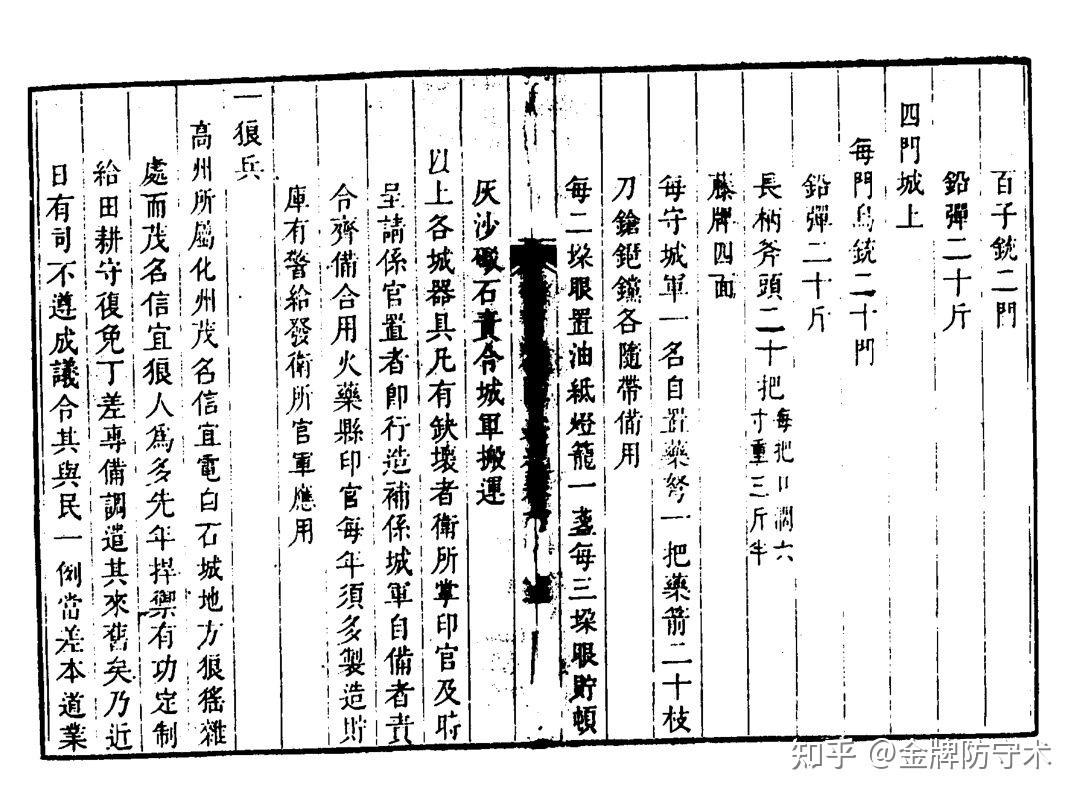 百子銃二門
鉛彈二十斤
四門城上
每門鳥銃二十門
鉛彈二十斤
長柄斧頭二十把每把口濶六寸重三斤半
藤牌四面
每守城軍一名自置藥弩一把藥箭二十枝
刀鎗鈀鐺各隨帶備用
每二垜眼置油紙燈籠一盞每三垜眼貯頓
灰沙礮石責令城軍搬運
以上各城器具凡有缺壞者衛所掌印官及時
呈請係官置者卽行造補係城軍自備者責
令齊備合用火藥縣印官每年須多製造貯
庫有警給發衛所官軍應用
一狼兵
高州所屬化州茂名信宜電白石城地方狼徭雜
處而茂名信宜狼人爲多先年捍禦有功定制
給田耕守復免丁差專備調遣其來舊矣乃近
日有司不遵成議令其與民一例當差本道業
知乎 @金牌防守术